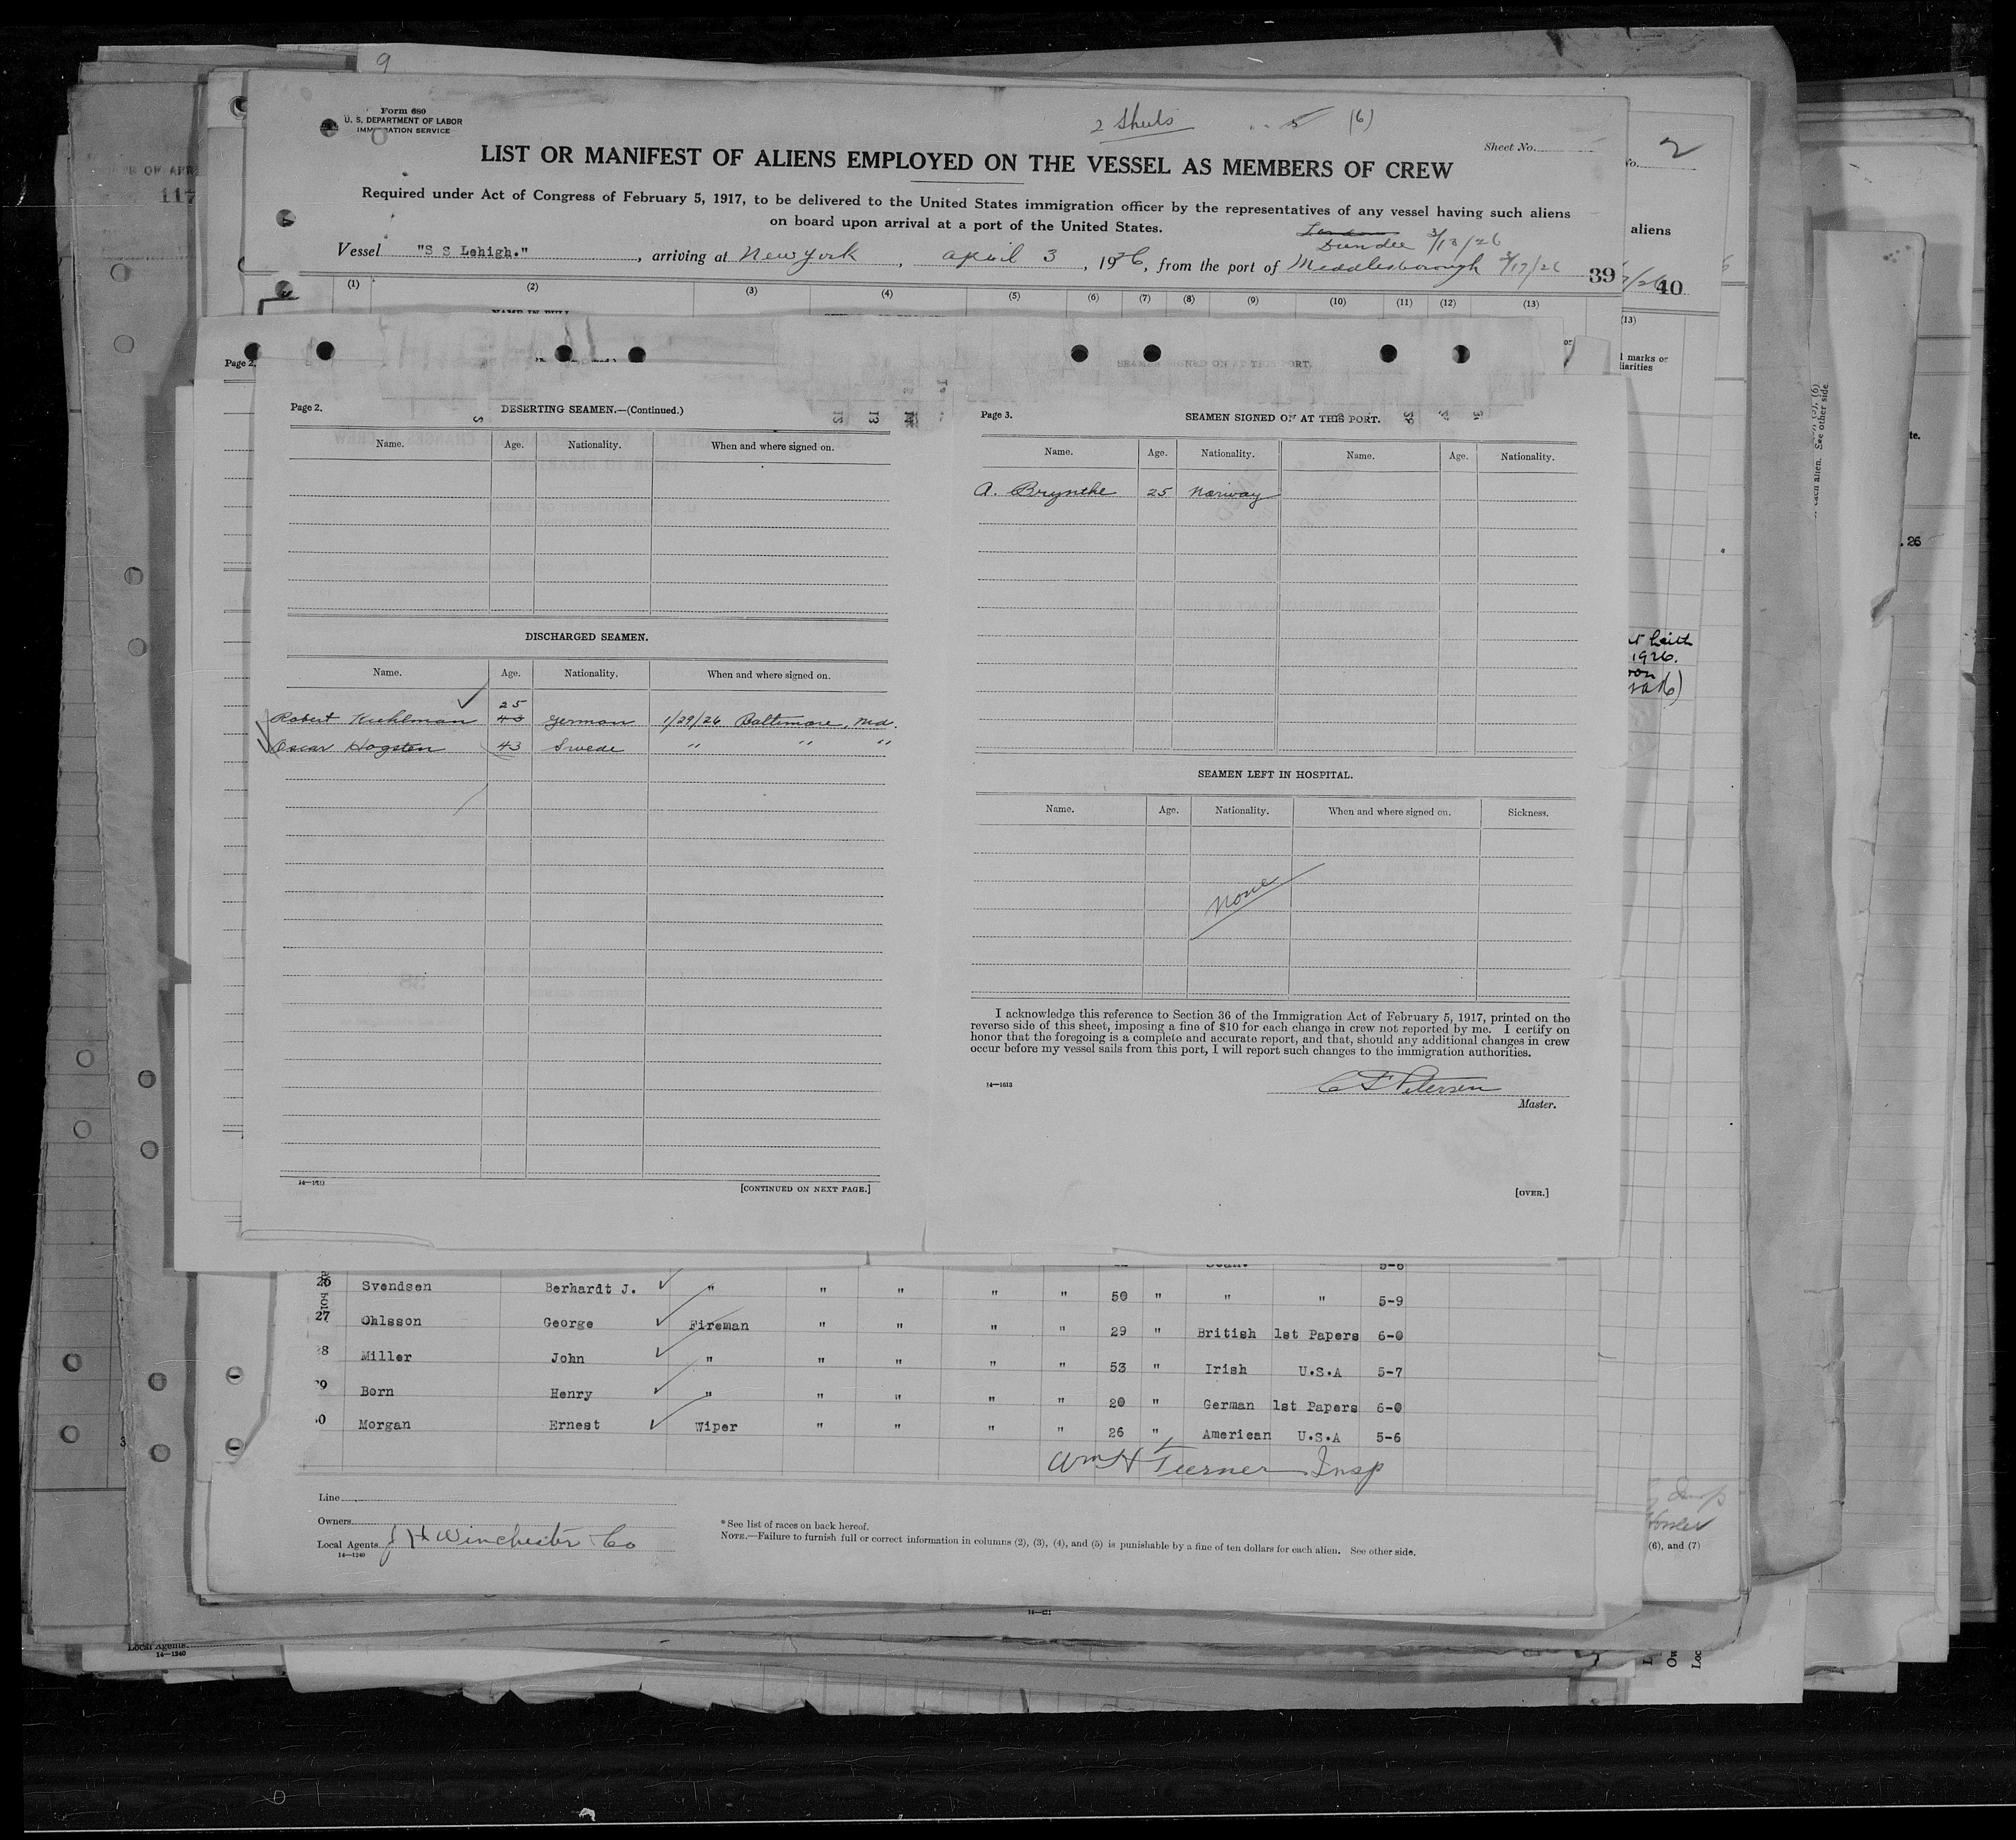 9
Form 680
U. S. DEPARTMENT OF LABOR
IMMIGRATION SERVICE
2 Sheets 5 (6)
Sheet No.
LIST OR MANIFEST OF ALIENS EMPLOYED ON THE VESSEL AS MEMBERS OF CREW
Required under Act of Congress of February 5, 1917, to be delivered to the United States immigration officer by the representatives of any vessel having such aliens
on board upon arrival at a port of the United States.
London
Dundee 3/13/26
Vessel "S S Lehigh.", arriving at New York, April 3, 1926, from the port of Middlesborough 3/17/26 39
(1) (2) (3) (4) (5) (6) (7) (8) (9) (10) (11) (12) (13)
No. 2
aliens
40
(13)
marks or
117
Page 2.
Page 2. DESERTING SEAMEN.—(Continued.)
Name. Age. Nationality. When and where signed on.
DISCHARGED SEAMEN.
Name. Age. Nationality. When and where signed on.
25
Robert Kuhlman 43 German 1/29/26 Baltimore, Md.
Oscar Hogsten 43 Swede " " "
14—1613
[CONTINUED ON NEXT PAGE.]
Page 3. SEAMEN SIGNED ON AT THIS PORT.
Name. Age. Nationality. Name. Age. Nationality.
A. Brynthe 25 Norway
SEAMEN LEFT IN HOSPITAL.
Name. Age. Nationality. When and where signed on. Sickness.
None
I acknowledge this reference to Section 36 of the Immigration Act of February 5, 1917, printed on the
reverse side of this sheet, imposing a fine of $10 for each change in crew not reported by me. I certify on
honor that the foregoing is a complete and accurate report, and that, should any additional changes in crew
occur before my vessel sails from this port, I will report such changes to the immigration authorities.
14—1613
C F Petersen
Master.
[OVER.]
1926.
See other side.
26
26 Svendsen Berhardt J. " " " " " 50 " " " 5-9
27 Ohlsson George Fireman " " " " 29 " British 1st Papers 6-0
8 Miller John " " " " " 53 " Irish U.S.A 5-7
9 Born Henry " " " " " 20 " German 1st Papers 6-0
0 Morgan Ernest Wiper " " " " 26 " American U.S.A 5-6
Wm H Turner Insp
Line
Owners
Local Agents J H Winchester Co
14—1240
* See list of races on back hereof.
NOTE.—Failure to furnish full or correct information in columns (2), (3), (4), and (5) is punishable by a fine of ten dollars for each alien. See other side.
(6), and (7)
Local Agents
14—1240